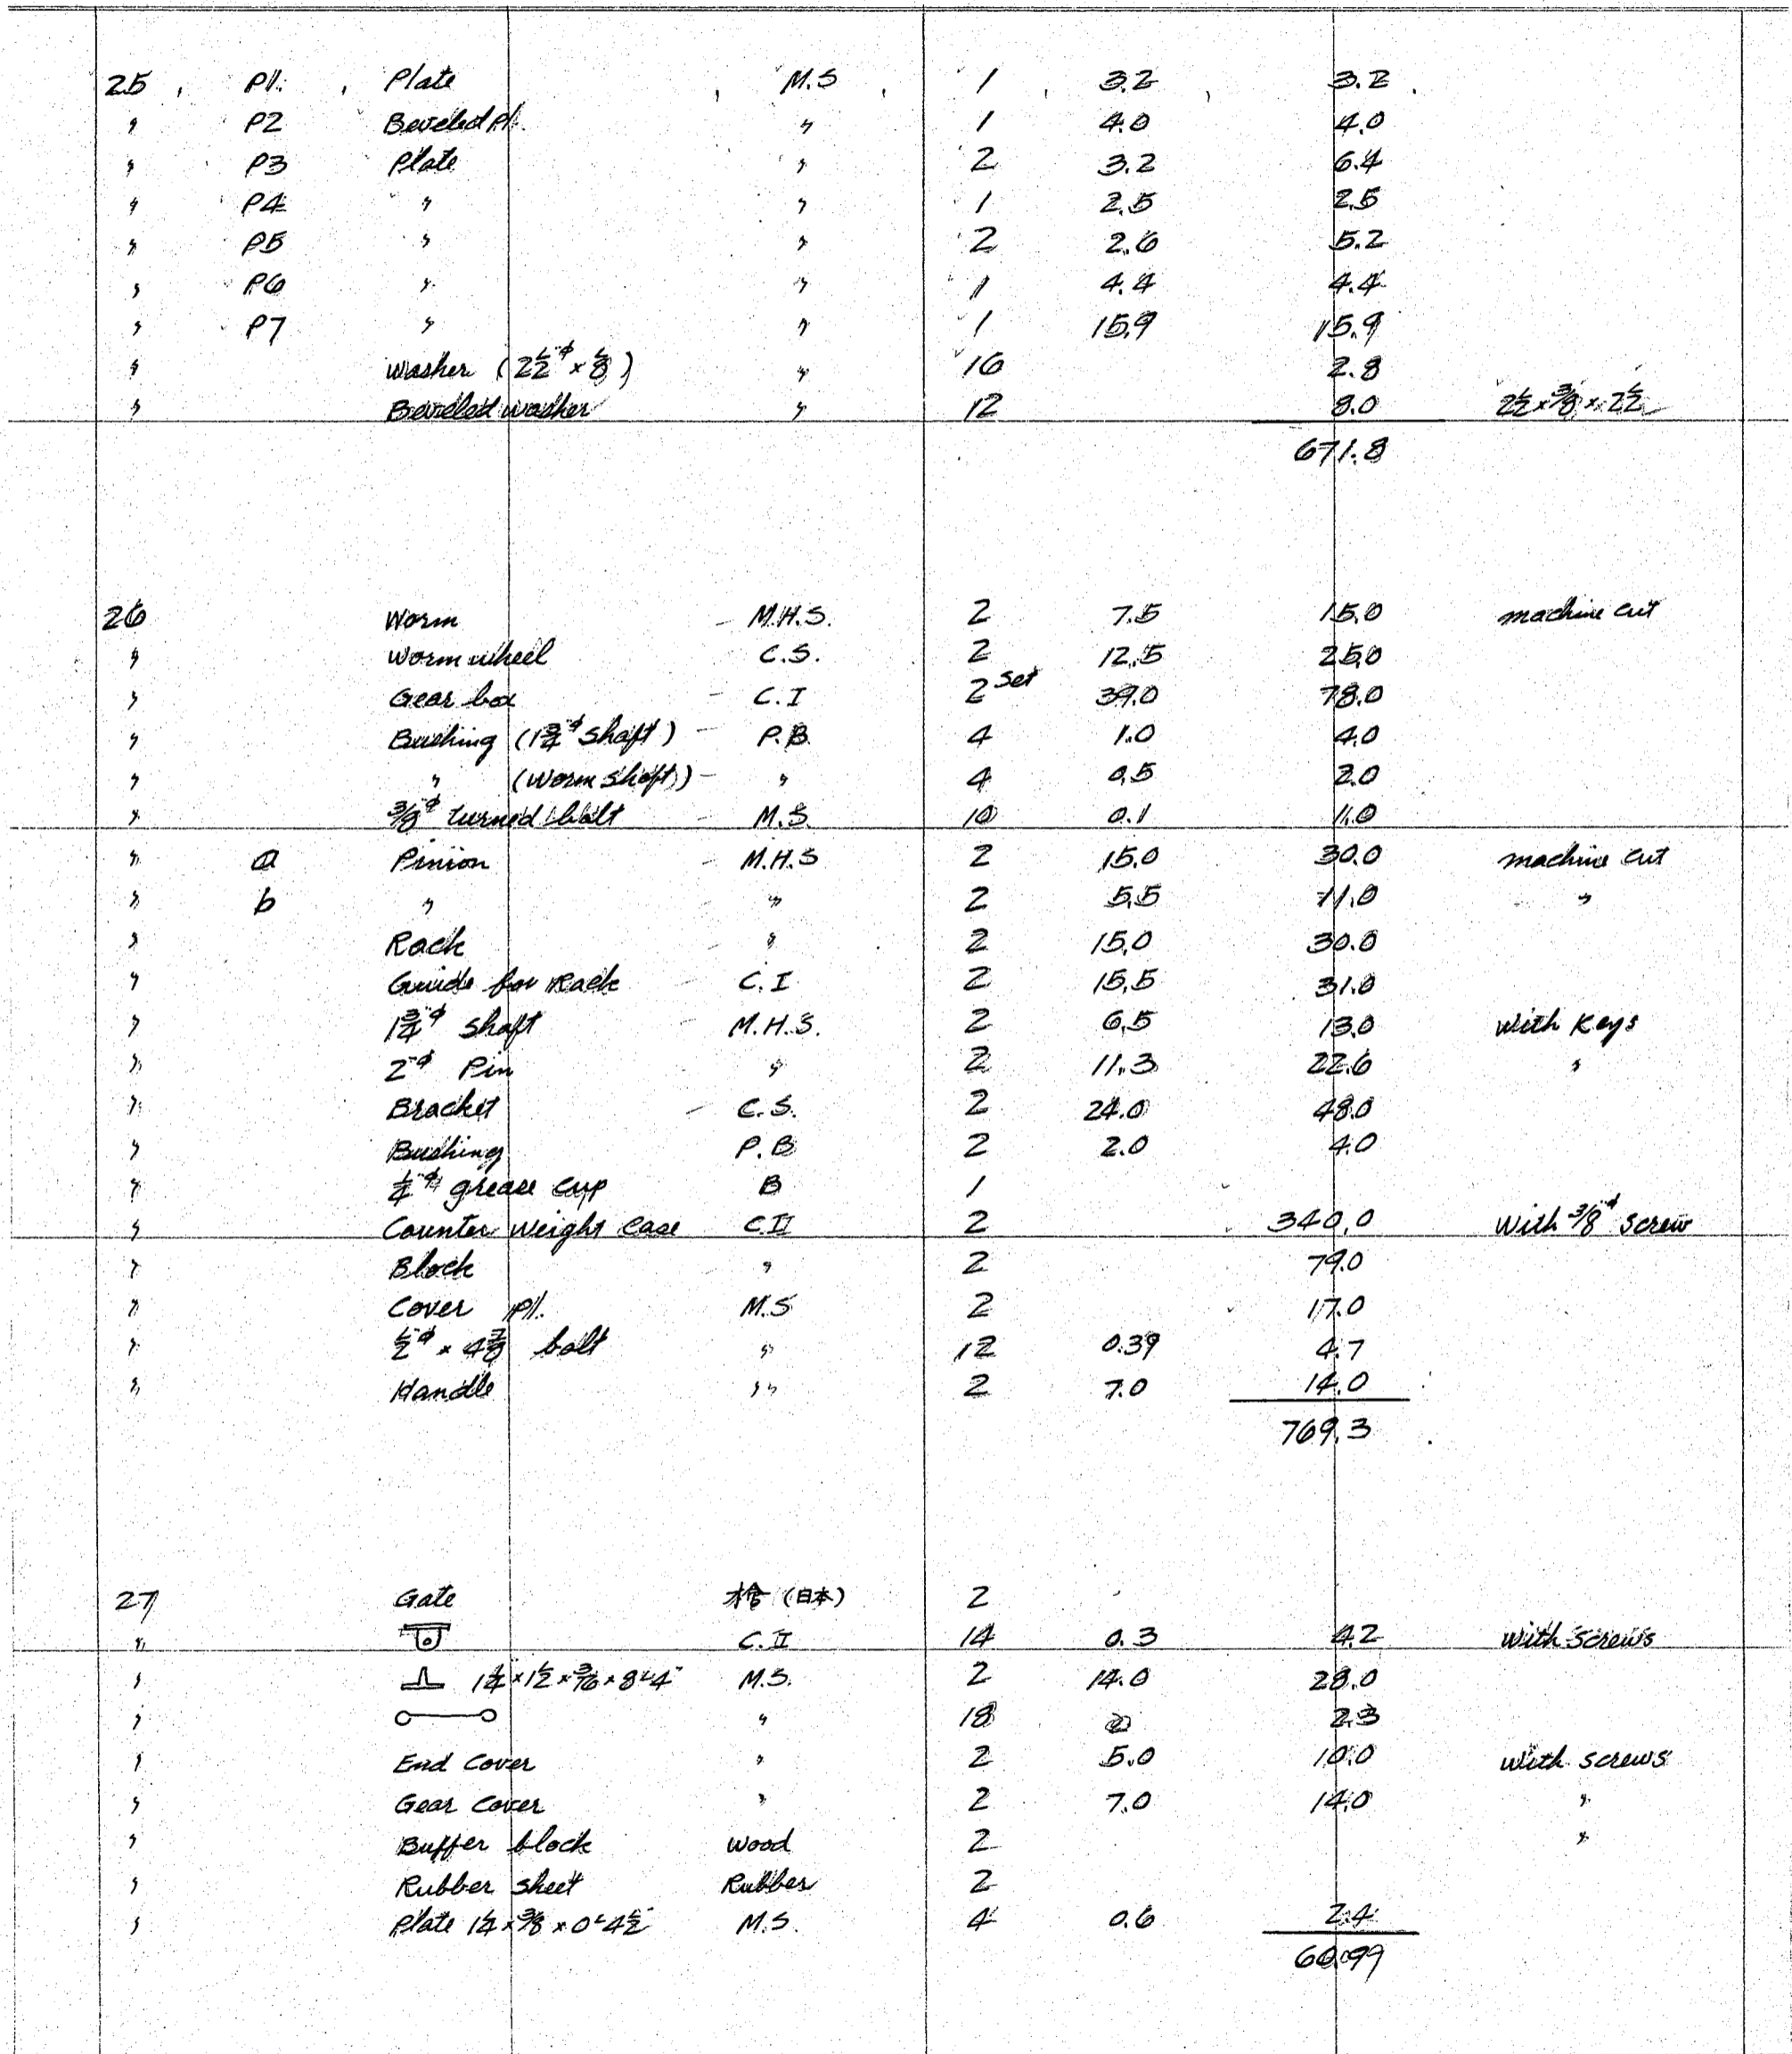 25 P1. Plate M.S 1 3.2 3.2
〃 P2 Beveled Pl. 〃 1 4.0 4.0
〃 P3 Plate 〃 2 3.2 6.4
〃 P4 〃 〃 1 2.5 2.5
〃 P5 〃 〃 2 2.6 5.2
〃 P6 〃 〃 1 4.4 4.4
〃 P7 〃 〃 1 15.9 15.9
〃 Washer (2½"φ × ⅛) 〃 16 2.8
〃 Beveled washer 〃 12 8.0 2½ × ⅜ × 2½
671.8
26 Worm M.H.S. 2 7.5 15.0 machine cut
〃 Worm wheel C.S. 2 12.5 25.0
〃 Gear box C.I 2 set 39.0 78.0
〃 Bushing (1¾"φ shaft) P.B. 4 1.0 4.0
〃 〃 (worm shaft) 〃 4 0.5 2.0
〃 3/8"φ turned bolt M.S. 10 0.1 1.0
〃 a Pinion M.H.S 2 15.0 30.0 machine cut
〃 b 〃 〃 2 5.5 11.0 〃
〃 Rack 〃 2 15.0 30.0
〃 Guide for Rack C.I 2 15.5 31.0
〃 1¾"φ shaft M.H.S. 2 6.5 13.0 with keys
〃 2"φ Pin 〃 2 11.3 22.6 〃
〃 Bracket C.S. 2 24.0 48.0
〃 Bushing P.B 2 2.0 4.0
〃 ¼"φ grease cup B 1
〃 Counter weight case C.I 2 340.0 with 3/8"φ screw
〃 Block 〃 2 79.0
〃 Cover pl. M.S 2 17.0
〃 ½"φ × 4⅞ bolt 〃 12 0.39 4.7
〃 Handle 〃 2 7.0 14.0
769.3
27 Gate 桧 (日本) 2
〃 C.I 14 0.3 4.2 with screws
〃 1¼ × 1½ × 3/16 × 8'-4" M.S. 2 14.0 28.0
〃 〃 18 2.3
〃 End Cover 〃 2 5.0 10.0 with screws
〃 Gear Cover 〃 2 7.0 14.0 〃
〃 Buffer block Wood 2 〃
〃 Rubber sheet Rubber 2
〃 Plate 1¼ × 3/8 × 0'-4½ M.S. 4 0.6 2.4